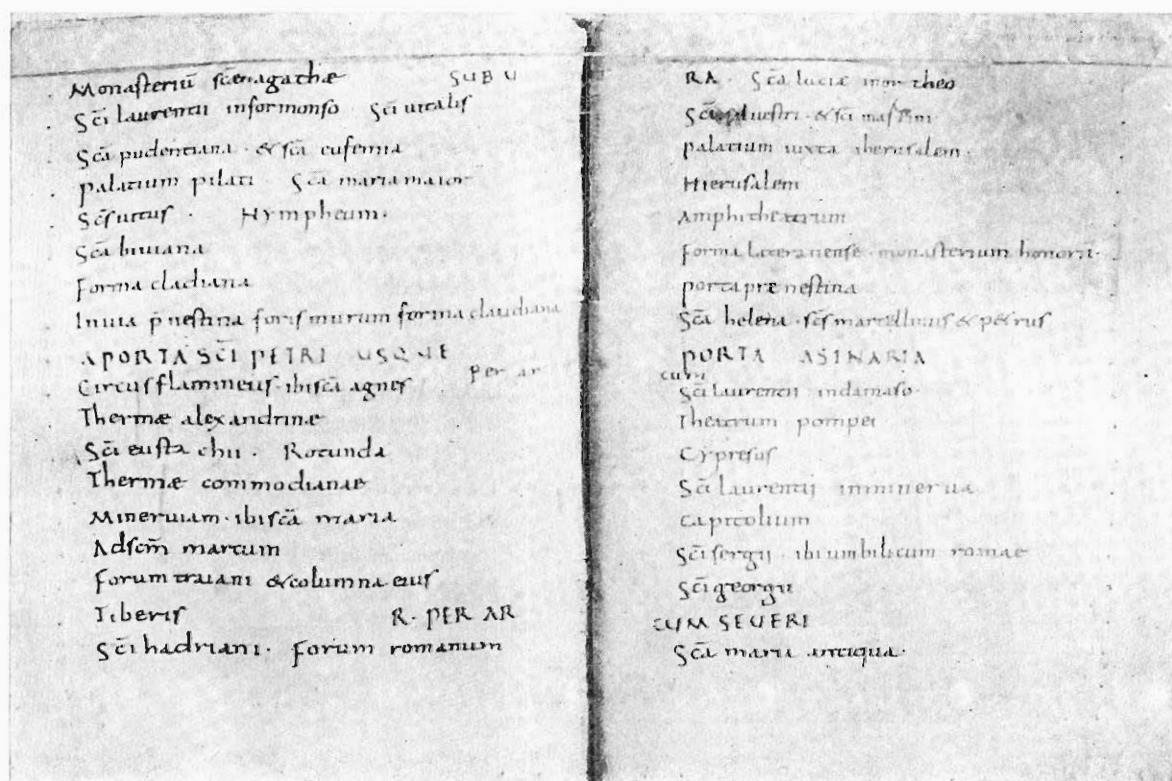 Monasteriū scāe agathæ SUBU
Scī laurentii informonso Scī uitalis
Scā pudentiana · & scā eufemia
palatium pilati · Scā maria maior
Scs uitus · Nympheum·
Scā biuiana
Forma cladiana
In uia p̄nestina foris murum forma claudiana
A PORTA SC̄I PETRI USQUE
Circus flamineus · ibi scā agnes per ar
Thermæ alexandrine
Scī eustachii · Rotunda
Thermæ commodianae
Mineruiam · ibi scā maria
Ad scm̄ marcum
Forum traiani & columna eius
Tiberis R· PER AR
Scī hadriani · Forum romanum
RA · Scā luciæ in ortheo
Scī siluestri · & scī martini
palatium iuxta iherusalem·
Hierusalem
Amphitheatrum
Forma lateranense · monasterium honorii·
porta prenestina
Scā helena · scs marcellinus & petrus
PORTA ASINARIA
cum
Scī laurentii in damaso·
Theatrum pompei
Cypresus
Scī laurentii in minerua
Capitolium
Scī sergii · ibi umbilicum romae
Scī georgii
CUM SEUERI
Scā maria antiqua·